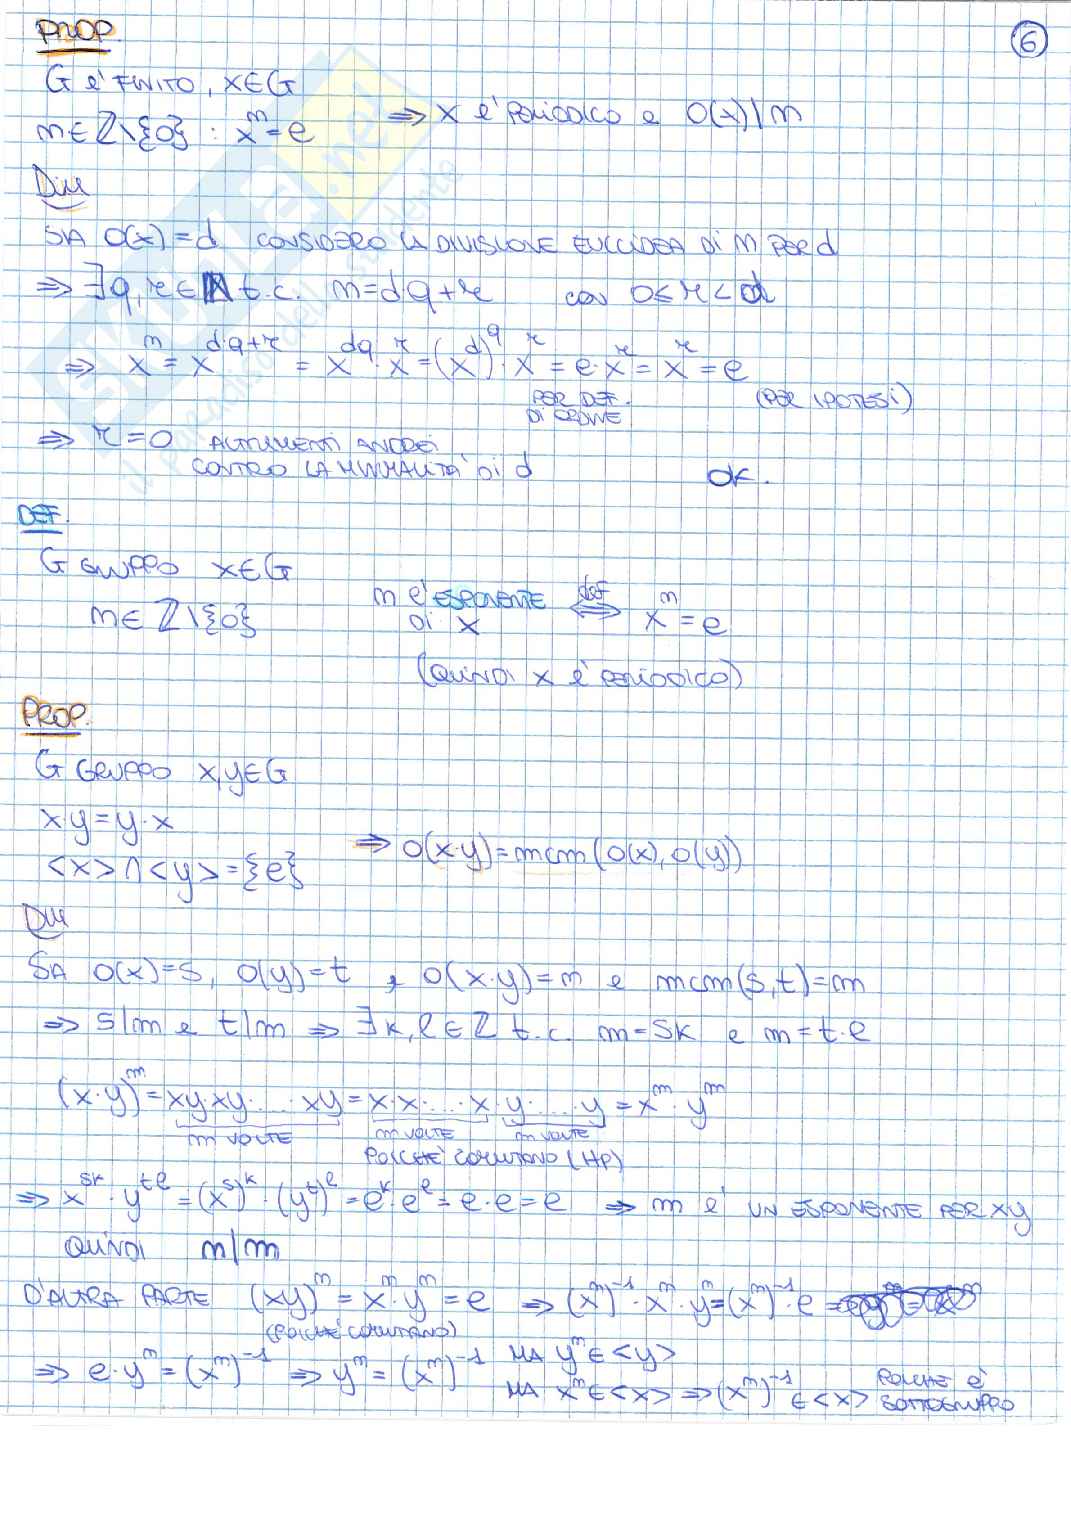 6
PROP.
G è FINITO, x∈G
m∈Z\{0} : x^m = e ⇒ x è PERIODICO e O(x)|m
Dim
SIA O(x)=d CONSIDERO LA DIVISIONE EUCLIDEA DI m PER d
⇒ ∃q,r∈N t.c. m=d·q+r con 0≤r<d
⇒ x^m = x^{d·q+r} = x^{dq}·x^r = (x^d)^q·x^r = e·x^r = x^r = e
PER DEF. DI ORDINE (PER IPOTESI)
⇒ r=0 ALTRIMENTI ANDREI
CONTRO LA MINIMALITÀ DI d OK.
DEF.
G GRUPPO x∈G
m∈Z\{0} m è ESPONENTE DI x ⇔ def x^m = e
(QUINDI x è PERIODICO)
PROP.
G GRUPPO x,y∈G
x·y=y·x
<x>∩<y>={e} ⇒ O(x·y)=mcm(O(x),O(y))
Dim
SIA O(x)=s, O(y)=t, O(x·y)=n e mcm(s,t)=m
⇒ s|m e t|m ⇒ ∃k,l∈Z t.c. m=sk e m=t·l
(x·y)^m = xy·xy·...·xy = x·x·...·x·y·...·y = x^m·y^m
m VOLTE m VOLTE m VOLTE
POICHÈ COMMUTANO (HP)
⇒ x^{sk}·y^{tl} = (x^s)^k·(y^t)^l = e^k·e^l = e·e = e ⇒ m è UN ESPONENTE PER xy
QUINDI n|m
D'ALTRA PARTE (xy)^n = x^n·y^n = e ⇒ (x^n)^{-1}·x^n·y^n = (x^n)^{-1}·e
(POICHÈ COMMUTANO)
⇒ e·y^n = (x^n)^{-1} ⇒ y^n = (x^n)^{-1} MA y^n∈<y>
MA x^n∈<x> ⇒ (x^n)^{-1}∈<x> POICHÈ È SOTTOGRUPPO
SKUOLA.net
il paradiso dello studente